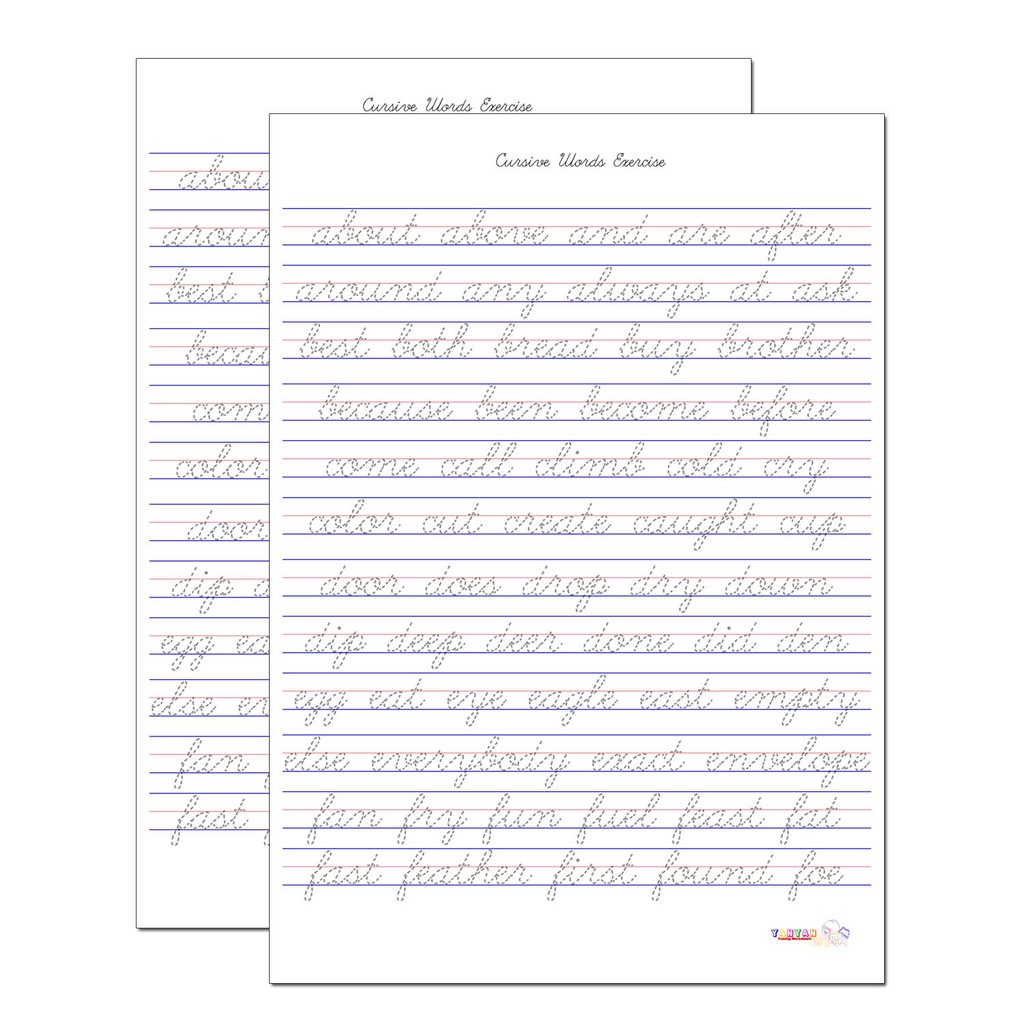 Cursive Words Exercise
abou
aroun
best b
becau
com
color
door
dip d
egg ea
else en
fan f
fast f
Cursive Words Exercise
about above and are after
around any always at ask
best both bread buy brother
because been become before
come call climb cold cry
color cut create caught cup
door does drop dry down
dip deep deer done did den
egg eat eye eagle east empty
else everybody exact envelope
fan fry fun fuel feast fat
fast feather first found foe
YANYAN
Tracing Worksheets